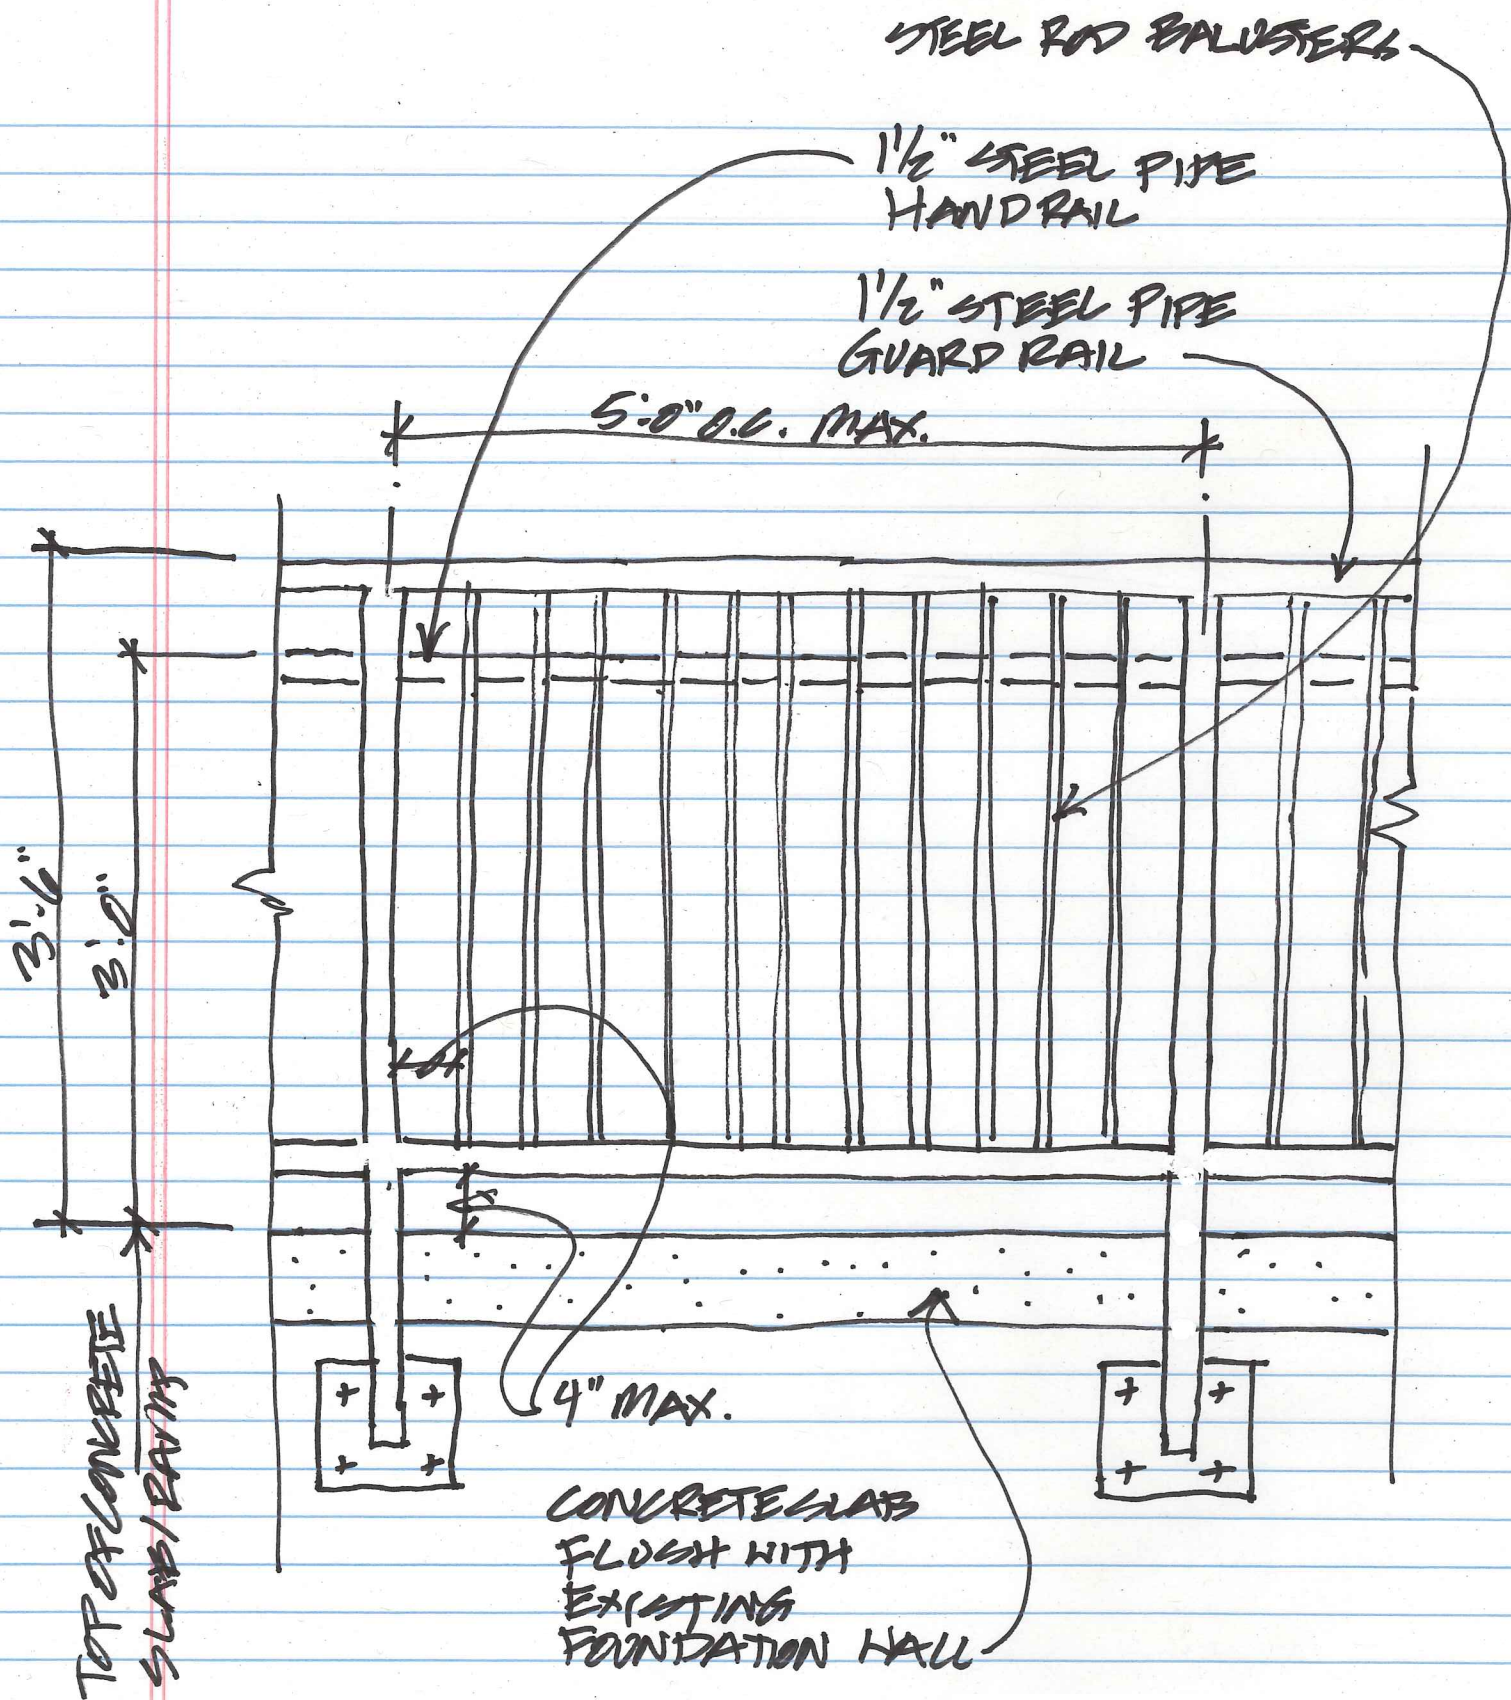 STEEL ROD BALUSTERS
1 1/2" STEEL PIPE
HANDRAIL
1 1/2" STEEL PIPE
GUARD RAIL
5'-0" O.C. MAX.
3'-6"
3'-0"
4" MAX.
TOP OF CONCRETE
SLAB/RAMP
CONCRETE SLAB
FLUSH WITH
EXISTING
FOUNDATION WALL